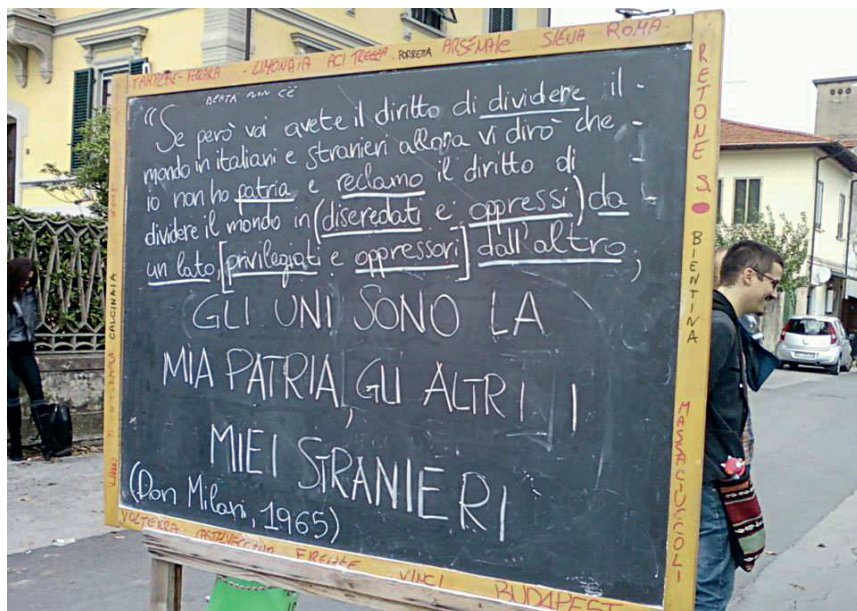 TAMPERE-FERRARA - LIMONAIA ACI TREZZA PORRETTA ARSENALE SIENA ROMA
"Se però voi avete il diritto di dividere il
mondo in italiani e stranieri allora vi dirò che
io non ho patria e reclamo il diritto di
dividere il mondo in (diseredati e oppressi) da
un lato, [privilegiati e oppressori] dall'altro,
GLI UNI SONO LA
MIA PATRIA, GLI ALTRI I
MIEI STRANIERI
(Don Milani, 1965)
VOLTERRA CASTELVECCHIO FIRENZE VINCI BUDAPEST
CALCINAIA
RETONE S.
BIENTINA
MASSACIUCCOLI